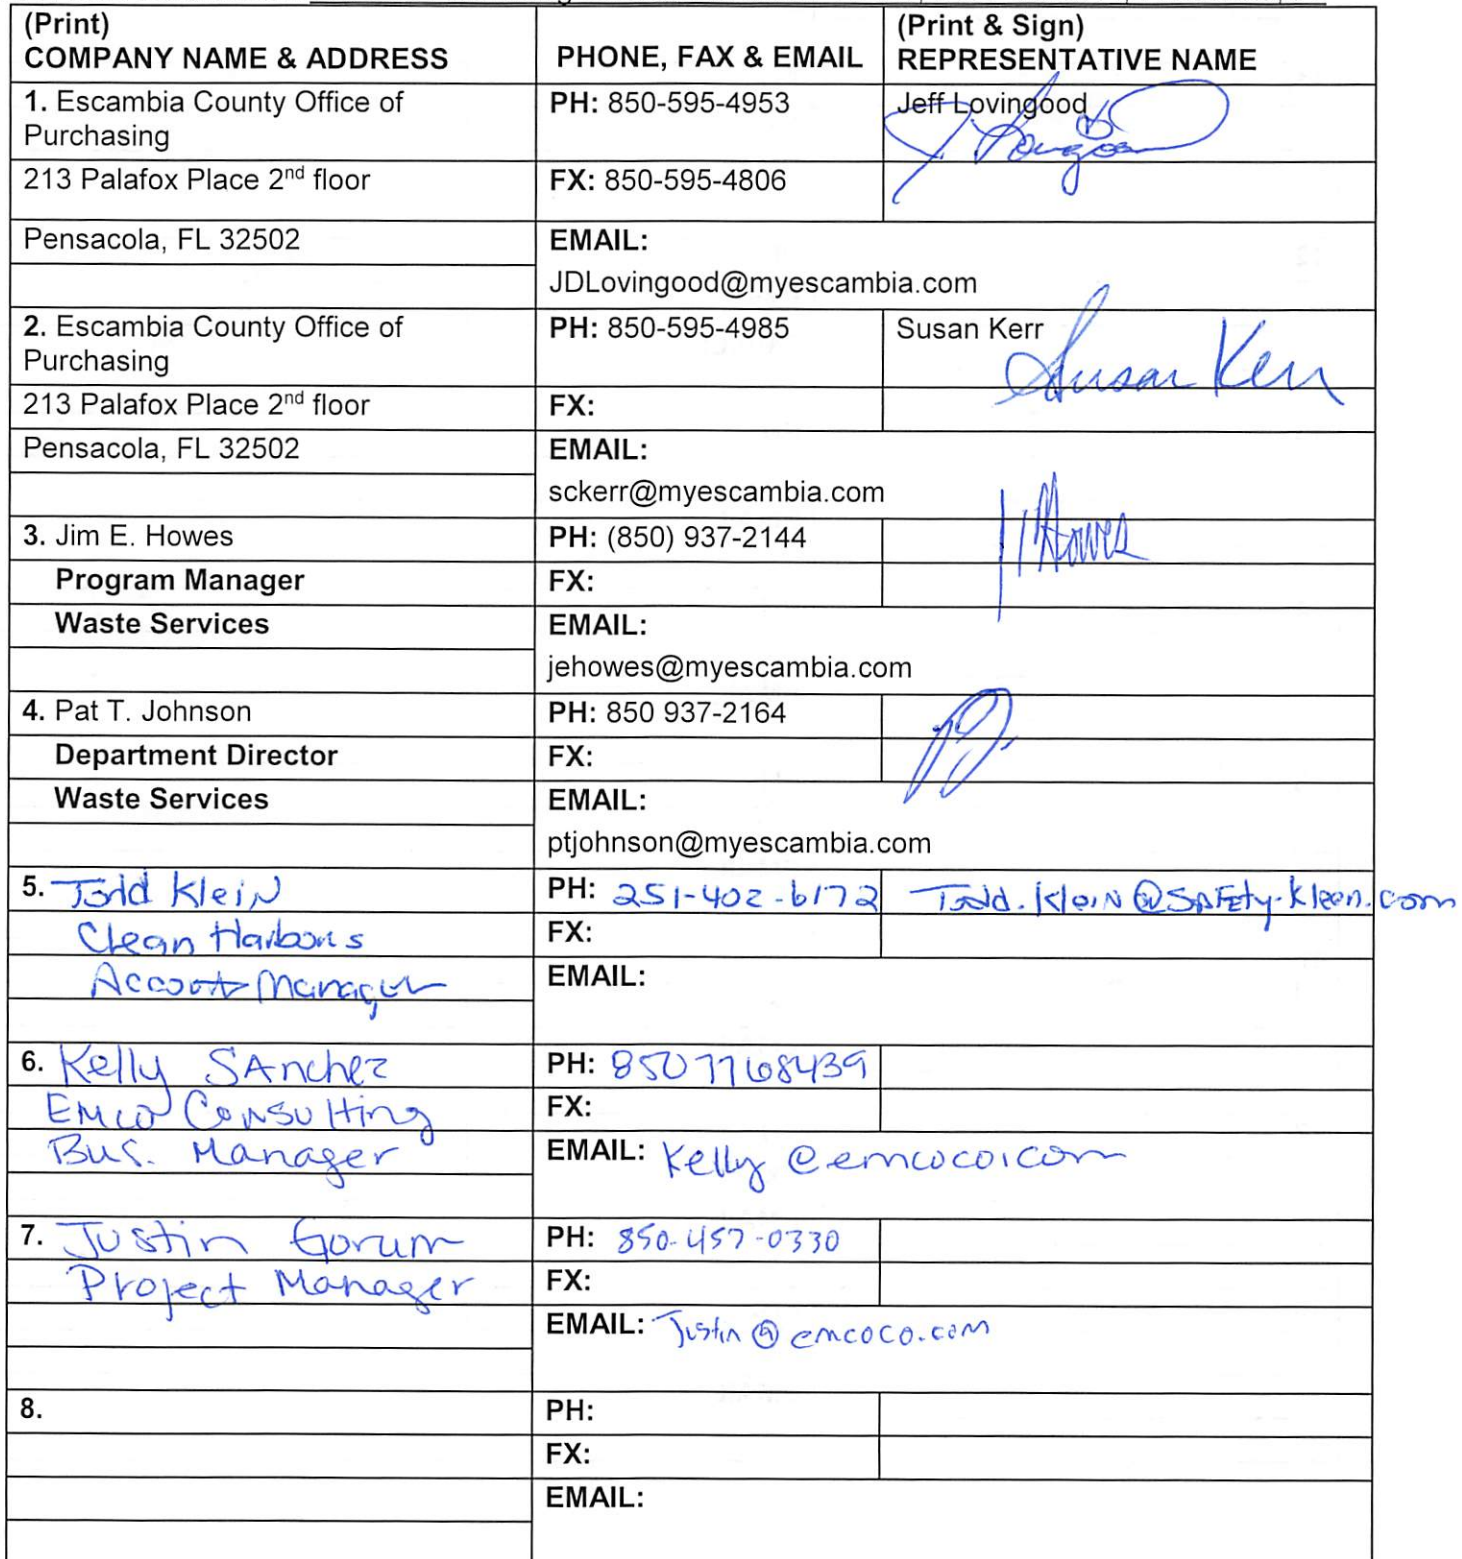 (Print)
COMPANY NAME & ADDRESS
PHONE, FAX & EMAIL
(Print & Sign)
REPRESENTATIVE NAME
1. Escambia County Office of
Purchasing
PH: 850-595-4953
Jeff Lovingood
213 Palafox Place 2nd floor
FX: 850-595-4806
Pensacola, FL 32502
EMAIL:
JDLovingood@myescambia.com
2. Escambia County Office of
Purchasing
PH: 850-595-4985
Susan Kerr
Susan Kerr
213 Palafox Place 2nd floor
FX:
Pensacola, FL 32502
EMAIL:
sckerr@myescambia.com
3. Jim E. Howes
PH: (850) 937-2144
Howes
Program Manager
FX:
Waste Services
EMAIL:
jehowes@myescambia.com
4. Pat T. Johnson
PH: 850 937-2164
Department Director
FX:
Waste Services
EMAIL:
ptjohnson@myescambia.com
5. Todd Klein
PH: 251-402-6172
Todd.Klein@SAFEty-Kleen.com
Clean Harbors
FX:
Account Manager
EMAIL:
6. Kelly SAnchez
PH: 8507768439
EMCO Consulting
FX:
Bus. Manager
EMAIL: Kelly@emcoco.com
7. Justin Gorum
PH: 850-457-0330
Project Manager
FX:
EMAIL: Justin@emcoco.com
8.
PH:
FX:
EMAIL: